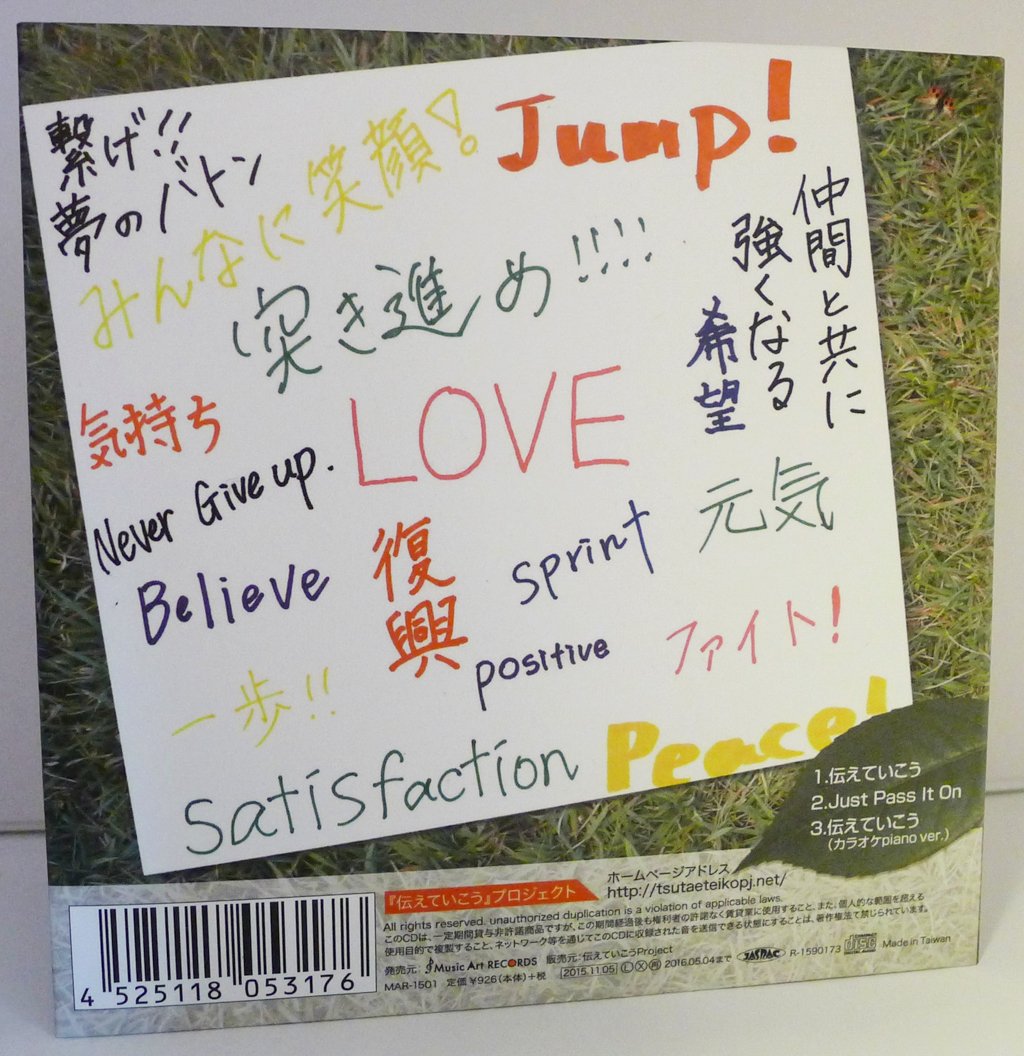 繋げ!!
夢のバトン
みんなに笑顔!
Jump!
突き進め!!!!
仲間と共に
強くなる
希望
気持ち
LOVE
Never Give up.
元気
Believe
復興
sprint
positive
ファイト!
一歩!!
Satisfaction
Peace!
1.伝えていこう
2.Just Pass It On
3.伝えていこう
(カラオケpiano ver.)
『伝えていこう』プロジェクト
ホームページアドレス
http://tsutaeteikopj.net/
All rights reserved. unauthorized duplication is a violation of applicable laws.
このCDは、一定期間貸与非許諾商品ですが、この期間経過後も権利者の許諾なく賃貸業に使用すること、また、個人的な範囲を超える
使用目的で複製すること、ネットワーク等を通じてこのCDに収録された音を送信できる状態にすることは、著作権法で禁じられています。
発売元: Music Art RECORDS 販売元: 伝えていこうProject
MAR-1501 定価 ¥926(本体)+税 2015.11.05 Ⓛ Ⓧ 再 2016.05.04まで JASRAC R-1590173 disc Made in Taiwan
4 525118 053176